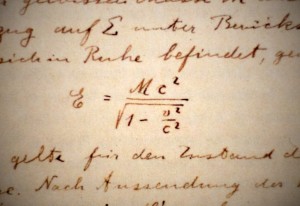 zug auf Σ unter Berücks
sich in Ruhe befindet, ge
E = M c² / √1 - v²/c²
gelte für den Zustand d
e. Nach Aussendung der